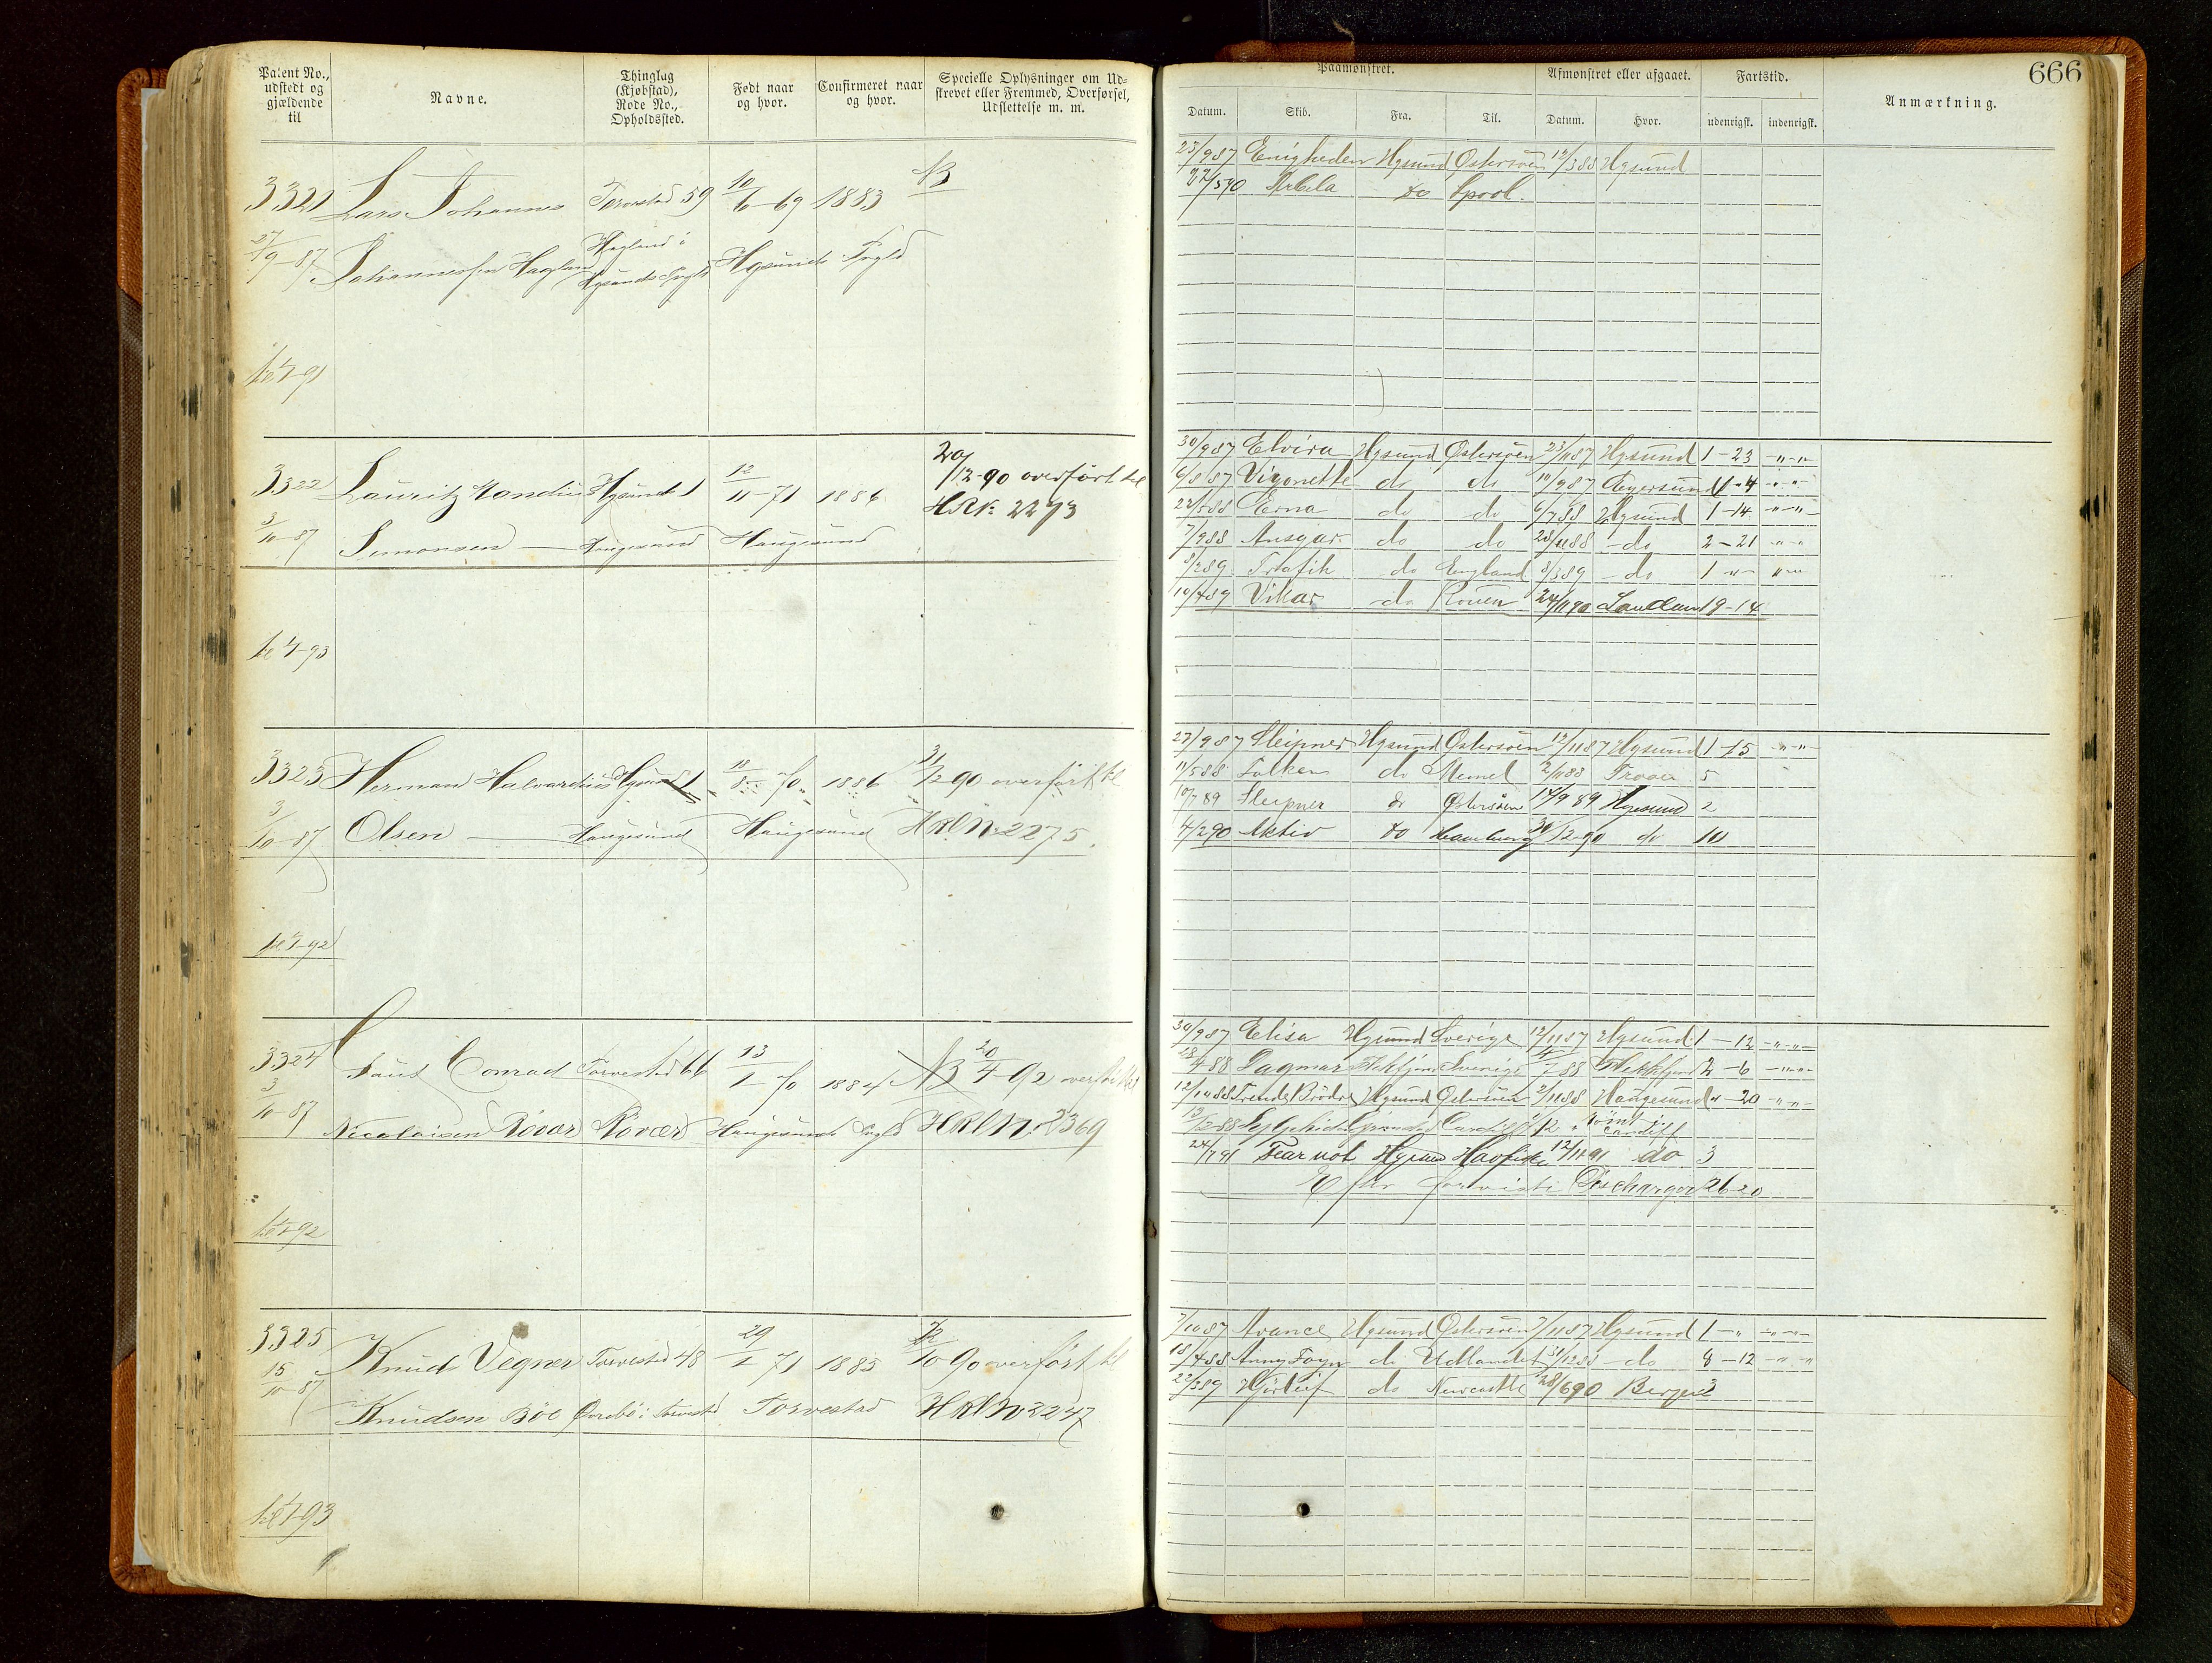 Patent No., udstedt og gjældende til
Navne.
Thinglag (Kjøbstad), Rode No., Opholdssted.
Født naar og hvor.
Confirmeret naar og hvor.
Specielle Oplysninger om Udskrevet eller Fremmed, Overførsel, Udslettelse m. m.
3321 Lars Johannes Torvestad 59 10/6-69 1883 N3
27/9-87 Johannessen Hagland Hagland i Hgsunds Sogld Hgsunds Sogld
til 1/4-91
3322 Lauritz Mandius Hgsund 1 12/11-71 1886 20/12-90 overført til
3/10-87 Simonsen Haugesund Haugesund HRN: 2273
til 1/4-93
3323 Herman Halvardius Hgsund 1 18/8-70 1886 31/12-90 overført til
3/10-87 Olsen Haugesund Haugesund HRlN: 2275.
til 1/4-92
3324 Conrad Torvestad 66 13/1-70 1884 N3 20/4-92 overført til
3/10-87 Nicolaisen Røvær Røvær Haugesunds Sogld HRlN: 2369
til 1/4-92
3325 Knud Vegner Torvestad 48 29/1 71 1885 /10 90 overført til
15/10-87 Knudsen Bøe Øvrebø i Torvestad Torvestad HRlNo 2247
til 1/4-93
666
Paamønstret. Afmønstret eller afgaaet. Fartstid. Anmærkning.
Datum. Skib. Fra. Til. Datum. Hvor. udenrigsk. indenrigsk.
23/9 87 Enigheden Hgsund Østersøen 12/3 88 Hgsund
22/5 90 Arbela do Lpool.
30/9 87 Elvira Hgsund Østersøen 23/11 87 Hgsund 1-23 -"-"-
6/8 87 Vigonette do do 10/9 87 Egersund 1-4 -"-"-
22/5 88 Erna do do 6/7 88 Hgsund 1-14 -"-"-
7/9 88 Ansgar do do 28/11 88 -do 2-21 -"-"-
8/2 89 Trafik do England 8/3 89 -do 1-"- "-"-
10/4 89 Vikar do Rouen 24/11 90 London 19-14
27/9 87 Sleipner Hgsund Østersøen 12/11 87 Hgsund 1-15 -"-"-
11/5 88 Falken do Memel 2/11 88 5
10/7 89 Sleipner do Østersøen 14/9 89 Hgesund 2
4/2 90 Aktiv do Hamburg 30/12-90 do 10
30/9 87 Elisa Hgsund Sverige 12/11 87 Hgsund 1-12 -"-"-
28/4 88 Dagmar Flekkfjord Sverige /7 88 Flekkfjord 2-6 -"-"-
12/10 88 Trende Brødre Hgsund Østersøen 2/11 88 Haugesund "-20 -"-"-
13/12 88 Cardiff /12 Rømt i Cardiff
24/7 91 Fear not Hgsund Havfiske 12/11 91 do 3
Efter forviste Discharger 26-20
7/10 87 Avance Hgsund Østersøen 7/11 87 Hgsund 1-" -"-"-
18/4 88 Anny Foyn do Udlandet 31/12 88 -do 8-12 -"-"-
22/3 89 Hjørleif do Newcastle 28/6 90 Bergen 3